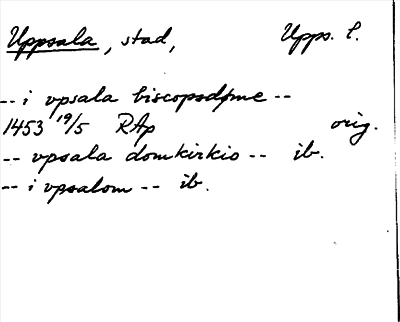 Uppsala, stad, Upps. l.
-- i vpsala biscopsdøme --
1453 19/5 RAp orig.
-- vpsala domkirkio -- ib.
-- i vpsalom -- ib.